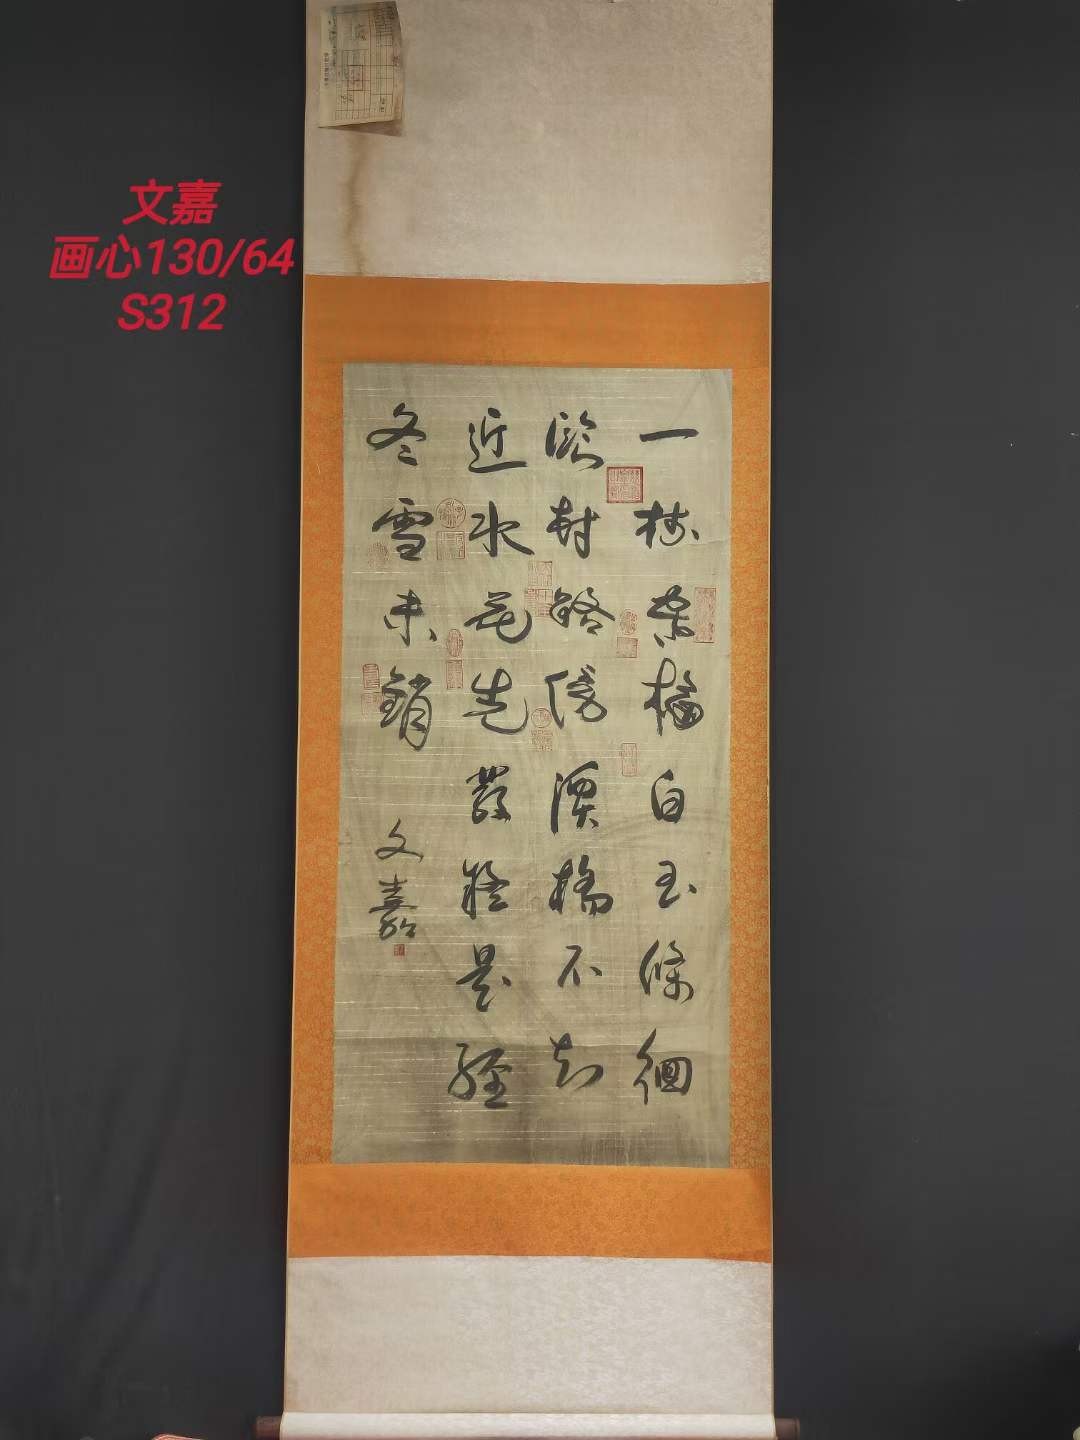 文嘉
画心130/64
S312
一樹寒梅白玉條徊
臨村路傍溪橋不知
近水花先發疑是經
冬雪未銷
文嘉